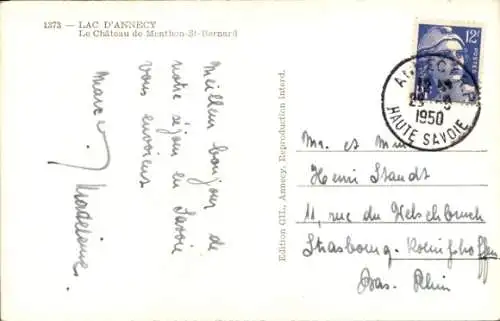 1373 — LAC D'ANNECY
Le Château de Menthon-St-Bernard
Meilleur bonjour de
notre séjour en Savoie
vous envoient
Marcel
Madeleine.
Edition GIL, Annecy, Reproduction interd.
12F
POSTES
ANNECY
1950
HAUTE SAVOIE
Mr. et Mme
Henri Staudt
11, rue du Welschbruch
Strasbourg-Kœnigshoffen
Bas-Rhin